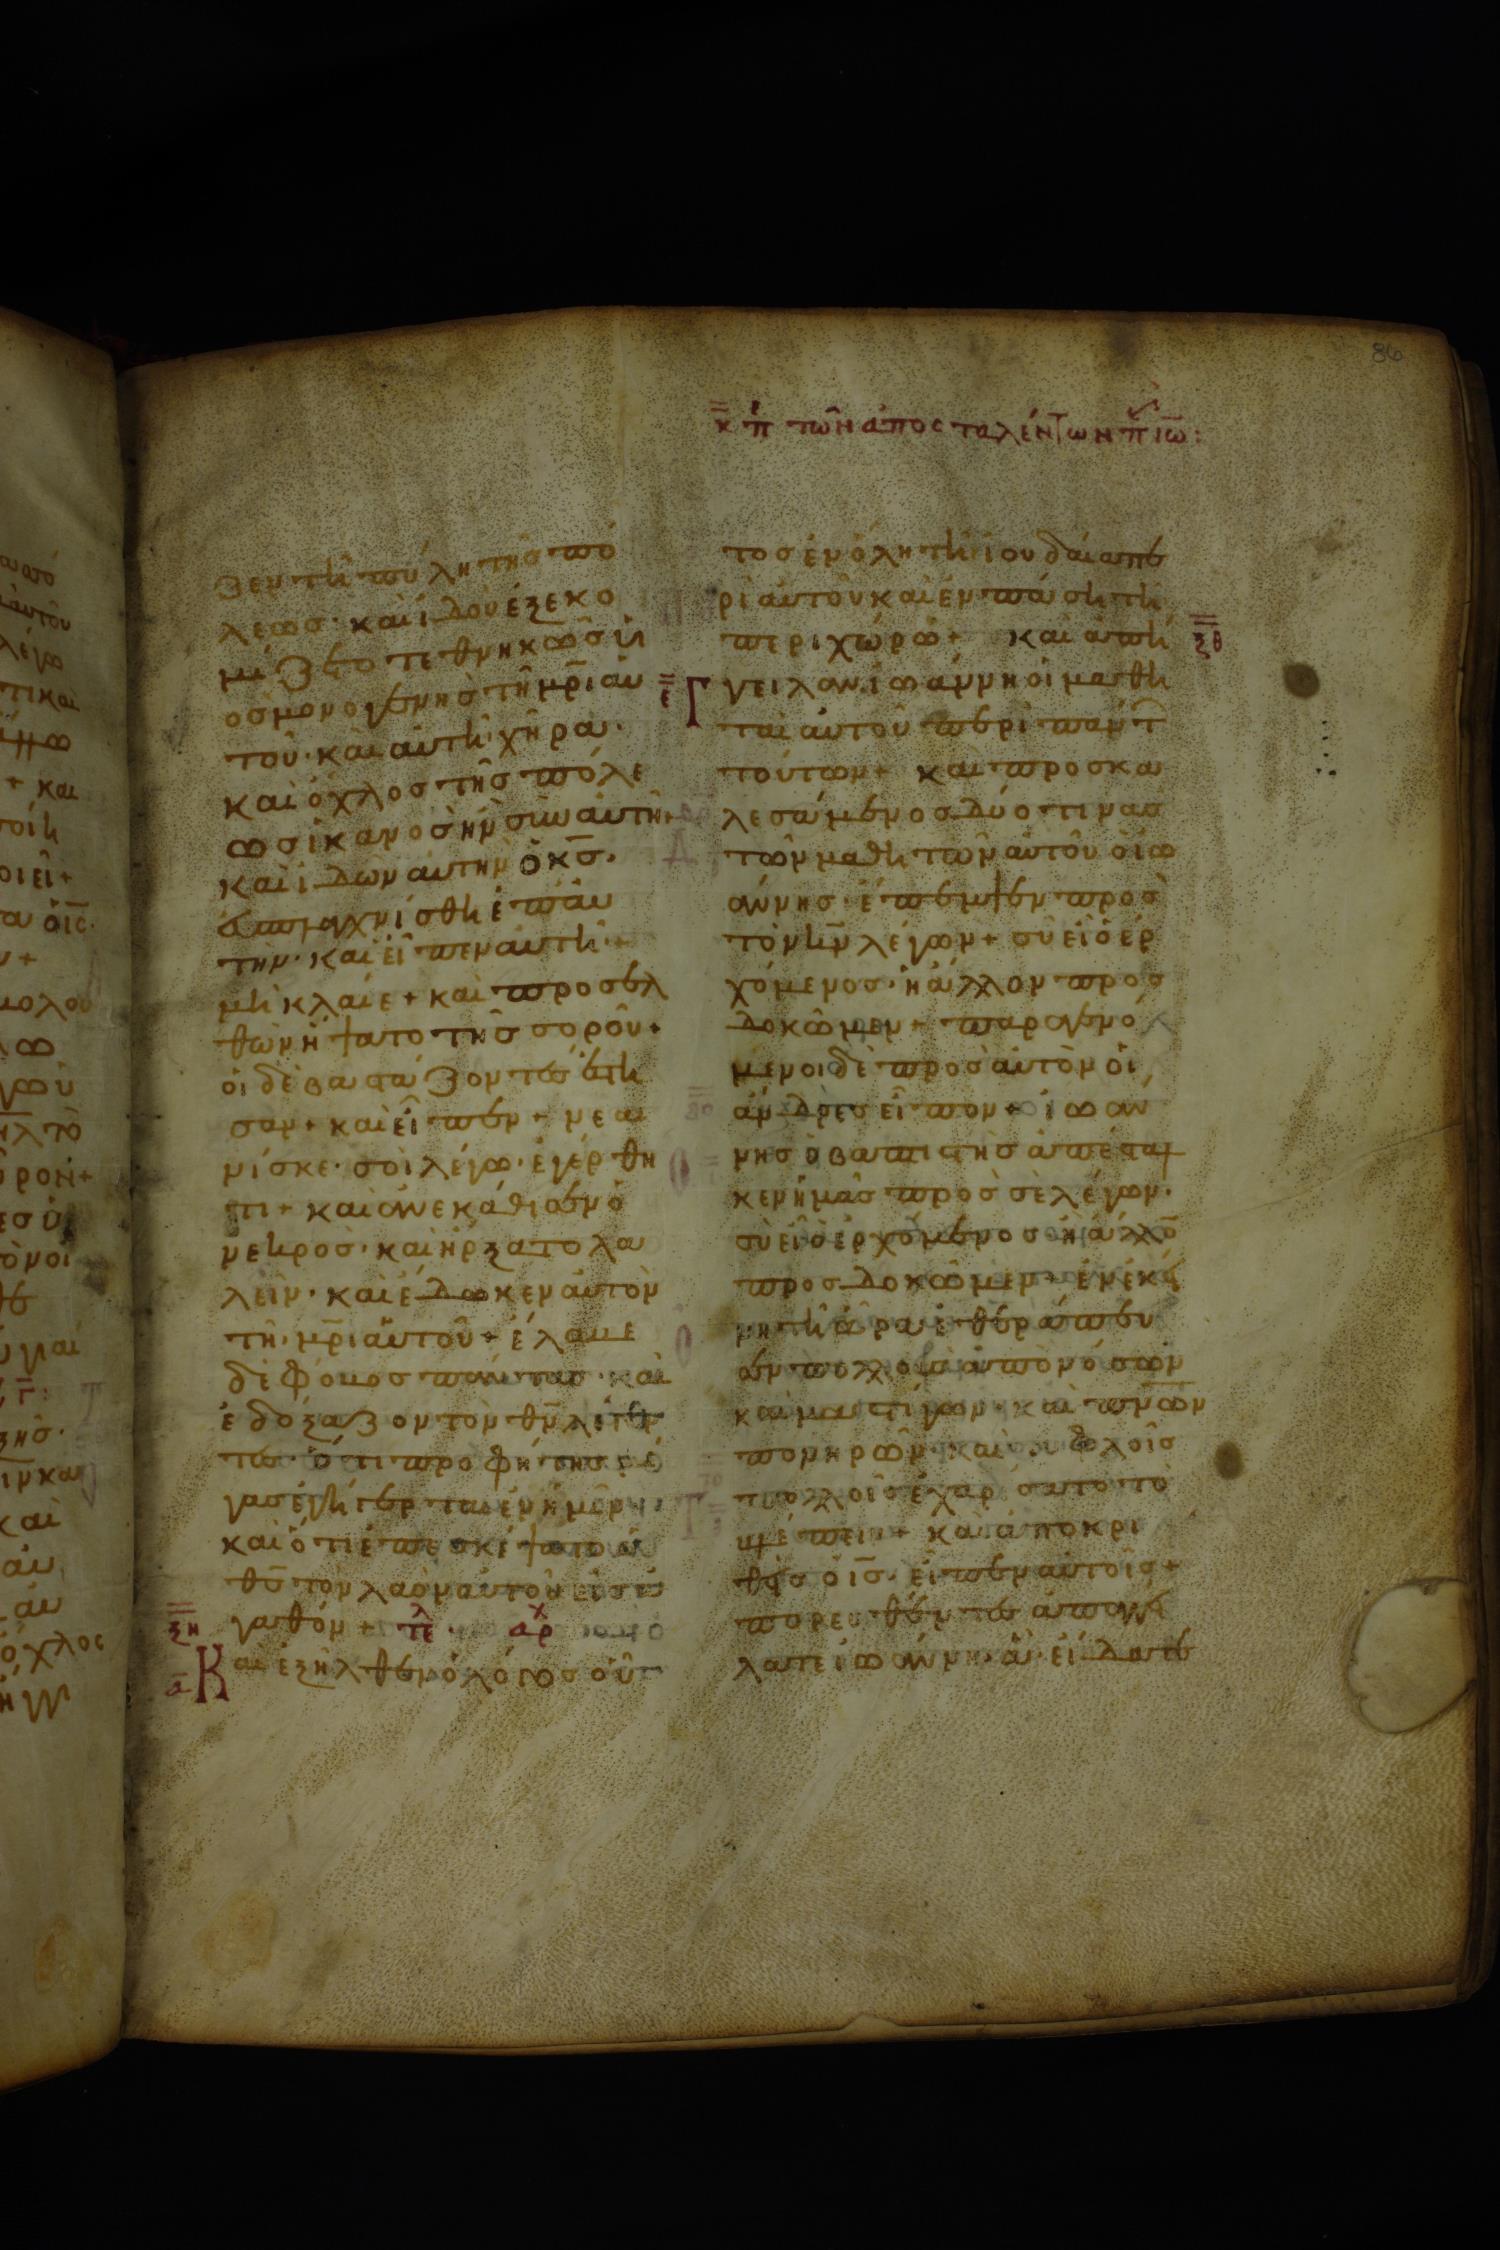 κ π τῶν ἀποσταλέντων π ιω:
ζεν τῆ πύλη τῆς πό
λεως· καὶ ἰδοὺ ἐξεκο
μίζετο τεθνηκὼς υἱ
ὸς μονογενὴς τῆ μρι αὐ
τοῦ· καὶ αὐτὴ χήρα·
καὶ ὄχλος τῆς πόλε
ως ἱκανὸς ἦν σὺν αὐτῆ+
καὶ ἰδὼν αὐτὴν ὁ κς·
ἐσπλαγχνίσθη ἐπ αὐ
τήν· καὶ εἶπεν αὐτῆ+
μὴ κλαῖε+ καὶ προσελ
θὼν ἥψατο τῆς σοροῦ·
οἱ δὲ βαστάζοντες ἔστη
σαν+ καὶ εἶπεν+ νεα
νίσκε· σοὶ λέγω· ἐγέρθη
τι+ καὶ ἀνεκάθισεν ὁ
νεκρος· καὶ ἤρξατο λα
λεῖν· καὶ ἔδωκεν αὐτὸν
τῆ μρι αὐτοῦ+ ἔλαβε
δὲ φόβος πάντας· καὶ
ἐδόξαζον τὸν θν λέγον
τες· ὅτι προφήτης μέ
γας ἐγήγερται ἐν ἡμῖν
καὶ ὅτι ἐπεσκέψατο ὁ
θς τὸν λαὸν αὐτοῦ εἰς ἀ
ξη γαθόν+ τελ αρχ
α Και ἐξῆλθεν ὁ λόγος οὗ
τος ἐν ὅλη τῆ ἰουδαία πε
ρὶ αὐτοῦ καὶ ἐν πάση τῆ
περιχώρω+ καὶ ἀπή ξθ
ε Γγειλαν ἰωάννη οἱ μαθη
ταὶ αὐτοῦ περὶ πάντ
τούτων+ καὶ προσκα
λεσάμενος δύο τινας
τῶν μαθητῶν αὐτοῦ ὁ ἰω
άννης· ἔπεμψεν πρὸς
τὸν ιν λέγων+ σὺ εἶ ὁ ἐρ
χόμενος· ἢ ἄλλον προσ
δοκῶμεν+ παραγενό
μενοι δὲ πρὸς αὐτὸν οἱ
ἄνδρες εἶπον+ ἰωάν
νης ὁ βαπτιστὴς ἀπέσταλ
κεν ἡμᾶς πρὸς σὲ λέγων·
σὺ εἶ ὁ ἐρχόμενος ἢ ἄλλο
προσδοκῶμεν+ ἐν ἐκεί
νη τῆ ὥρα ἐθεράπευ
σεν πολλοὺς ἀπὸ νόσων
καὶ μαστίγων· καὶ πνων
πονηρῶν· καὶ τυφλοῖς
πολλοῖς ἐχαρίσατο τὸ
βλέπειν+ καὶ ἀποκρι
θεὶς ὁ ις· εἶπεν αὐτοῖς+
πορευθέντες ἀπαγγεί
λατε ἰωάννη· ἃ εἴδατε